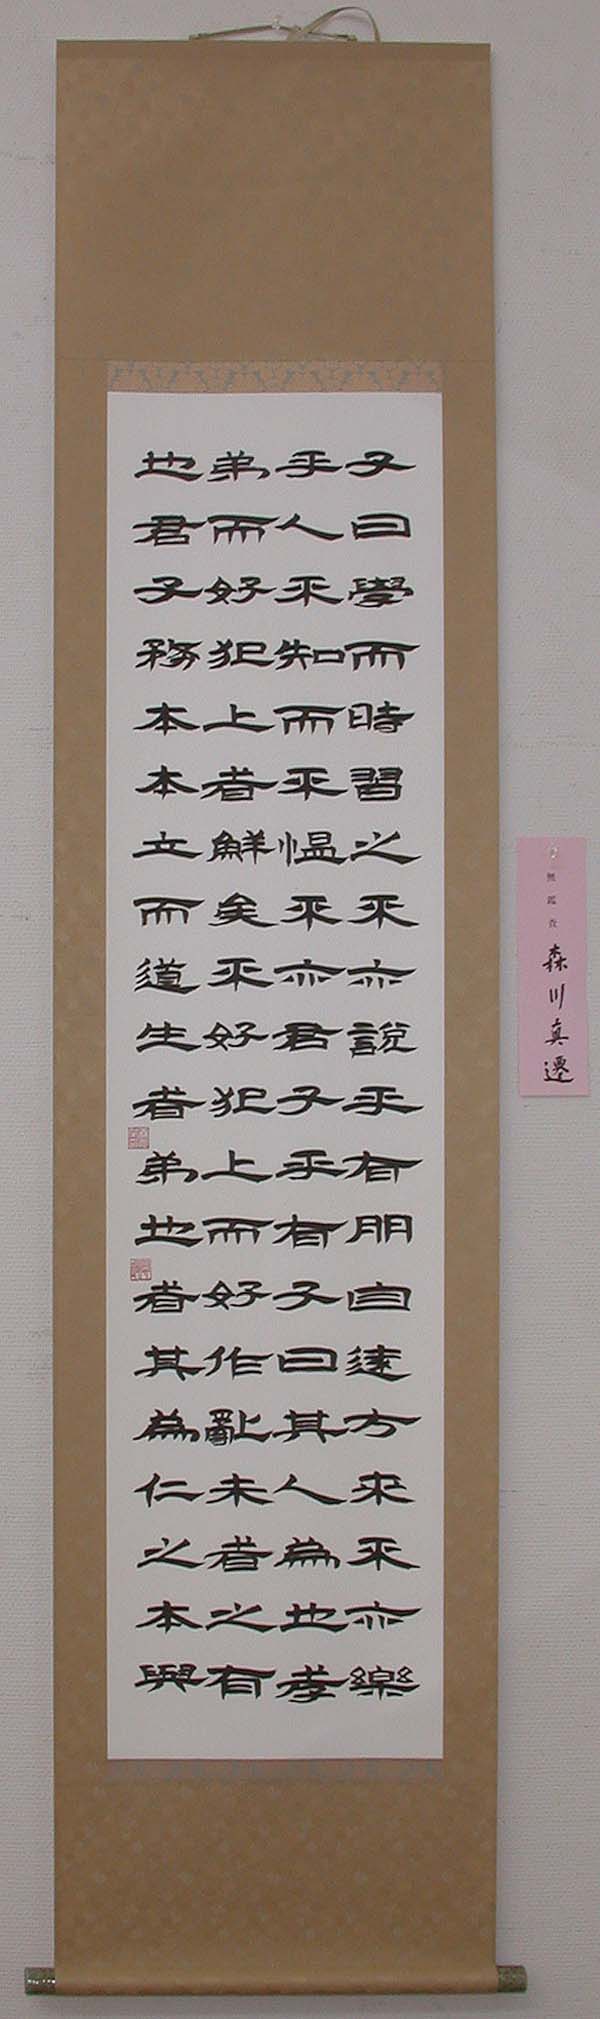 子曰學而時習之不亦說乎有朋自遠方來不亦樂
乎人不知而不慍不亦君子乎有子曰其人為也孝
弟而好犯上者鮮矣不好犯上而好作亂未者之有
也君子務本本立而道生者弟也者其為仁之本與
無鑑査
森川真遷